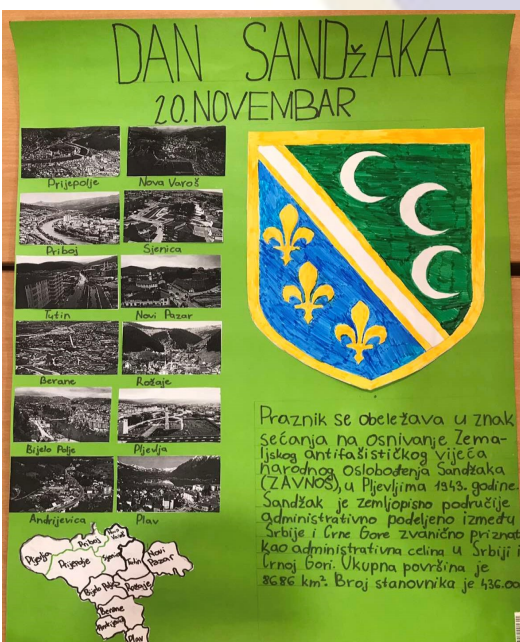 DAN SANDžAKA
20. NOVEMBAR
Prijepolje
Nova Varoš
Priboj
Sjenica
Tutin
Novi Pazar
Berane
Rožaje
Bijelo Polje
Pljevlja
Andrijevica
Plav
Praznik se obeležava u znak
sećanja na osnivanje Zema-
ljskog antifašističkog vijeća
narodnog oslobođenja Sandžaka
(ZAVNOS), u Pljevljima 1943. godine.
Sandžak je zemljopisno područije
administrativno podeljeno između
Srbije i Crne Gore zvanično priznat
kao administrativna celina u Srbiji i
Crnoj Gori. Ukupna površina je
8686 km². Broj stanovnika je 436.00
Priboj
Nova
Varoš
Prijepolje
Tutin
Novi
Pazar
Bijelo Polje
Rožaje
Berane
Plav